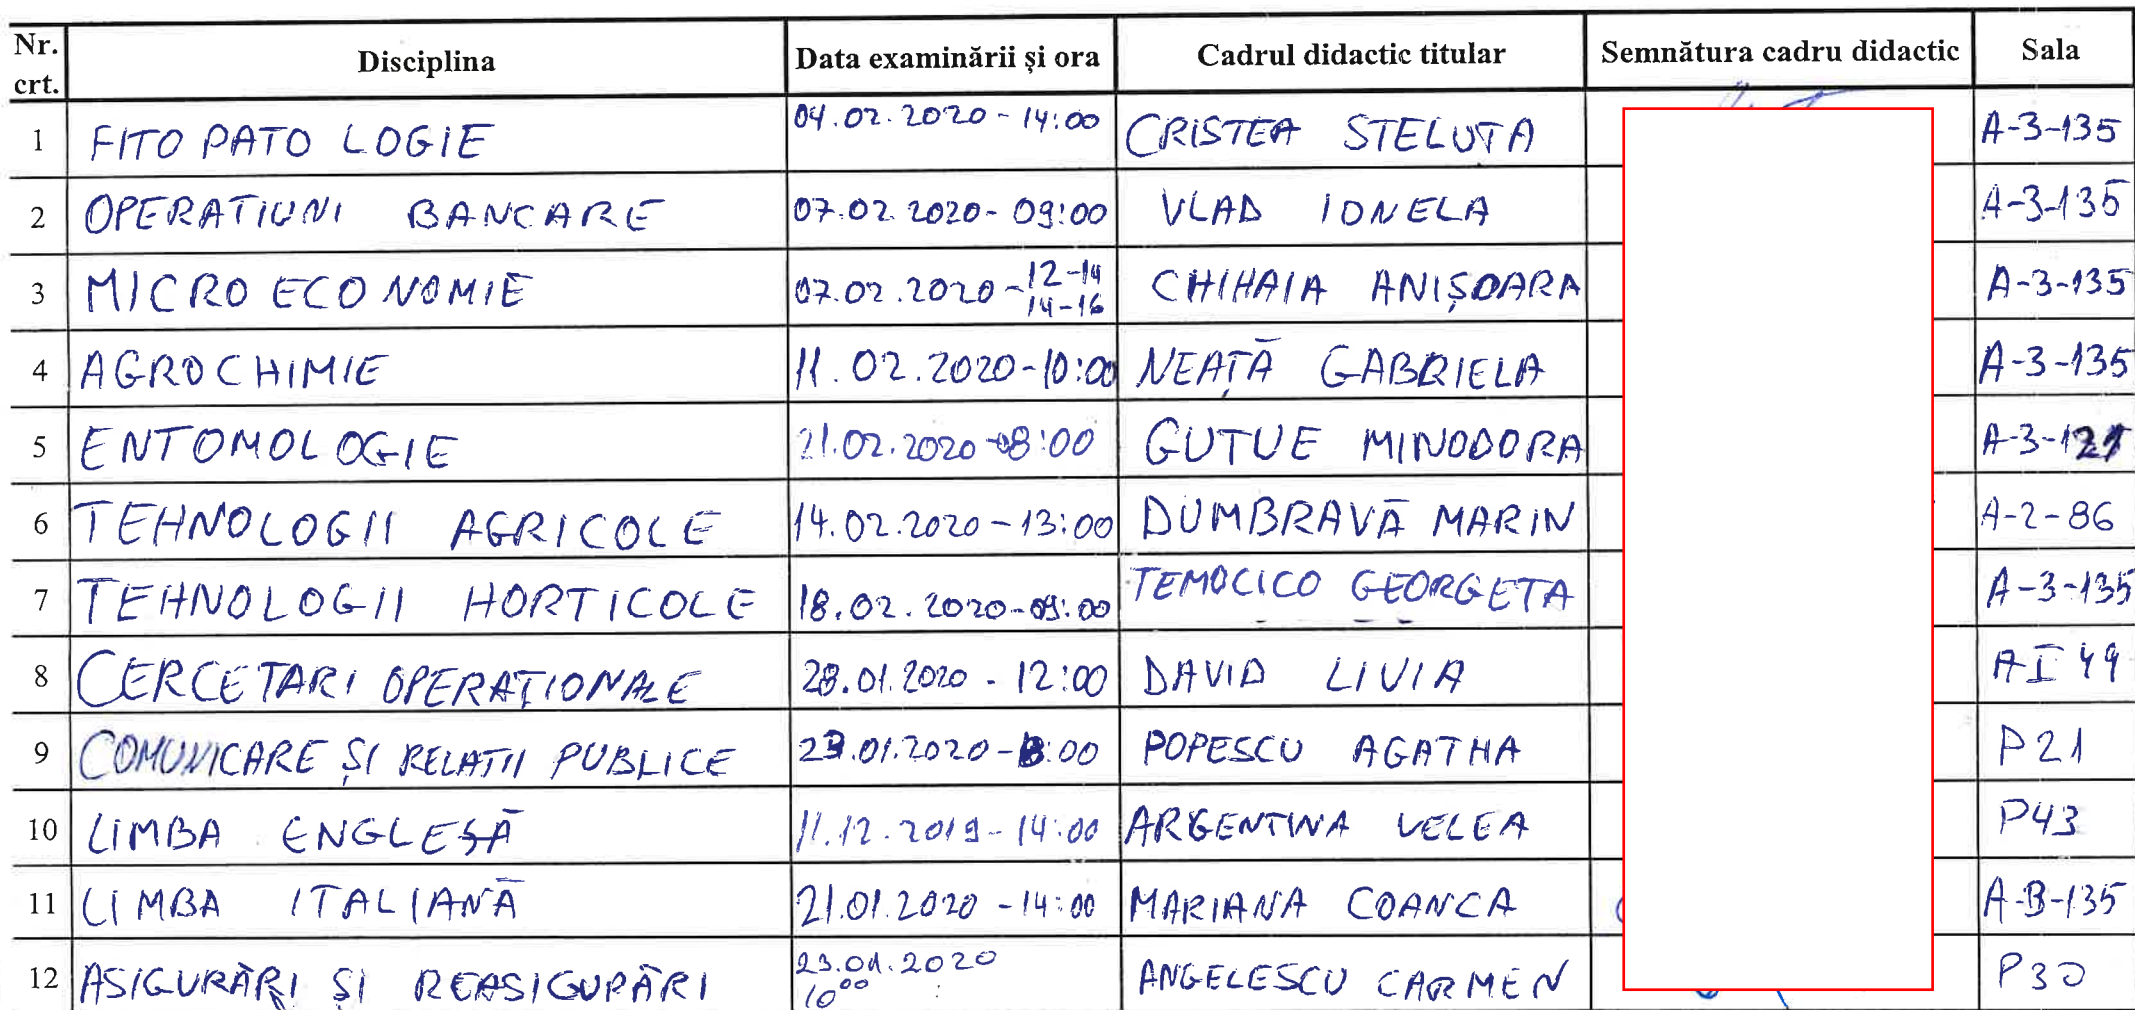 Nr. crt. Disciplina Data examinării și ora Cadrul didactic titular Semnătura cadru didactic Sala
1 FITOPATOLOGIE 04.02.2020 - 14:00 CRISTEA STELUTA A-3-135
2 OPERATIUNI BANCARE 07.02.2020 - 09:00 VLAD IONELA A-3-135
3 MICROECONOMIE 07.02.2020 - 12-14 14-16 CHIHAIA ANIȘOARA A-3-135
4 AGROCHIMIE 11.02.2020 - 10:00 NEAȚĂ GABRIELA A-3-135
5 ENTOMOLOGIE 21.02.2020 - 08:00 GUTUE MINODORA A-3-121
6 TEHNOLOGII AGRICOLE 14.02.2020 - 13:00 DUMBRAVĂ MARIN A-2-86
7 TEHNOLOGII HORTICOLE 18.02.2020 - 09:00 TEMOCICO GEORGETA A-3-135
8 CERCETARI OPERAȚIONALE 28.01.2020 - 12:00 DAVID LIVIA AI 49
9 COMUNICARE ȘI RELATII PUBLICE POPESCU AGATHA P21
10 LIMBA ENGLESĂ 11.12.2019 - 14:00 ARGENTINA VELEA P43
11 LIMBA ITALIANĂ 21.01.2020 - 14:00 MARIANA COANCA A-B-135
12 ASIGURĂRI ȘI REASIGURĂRI 23.01.2020 10⁰⁰ ANGELESCU CARMEN P30